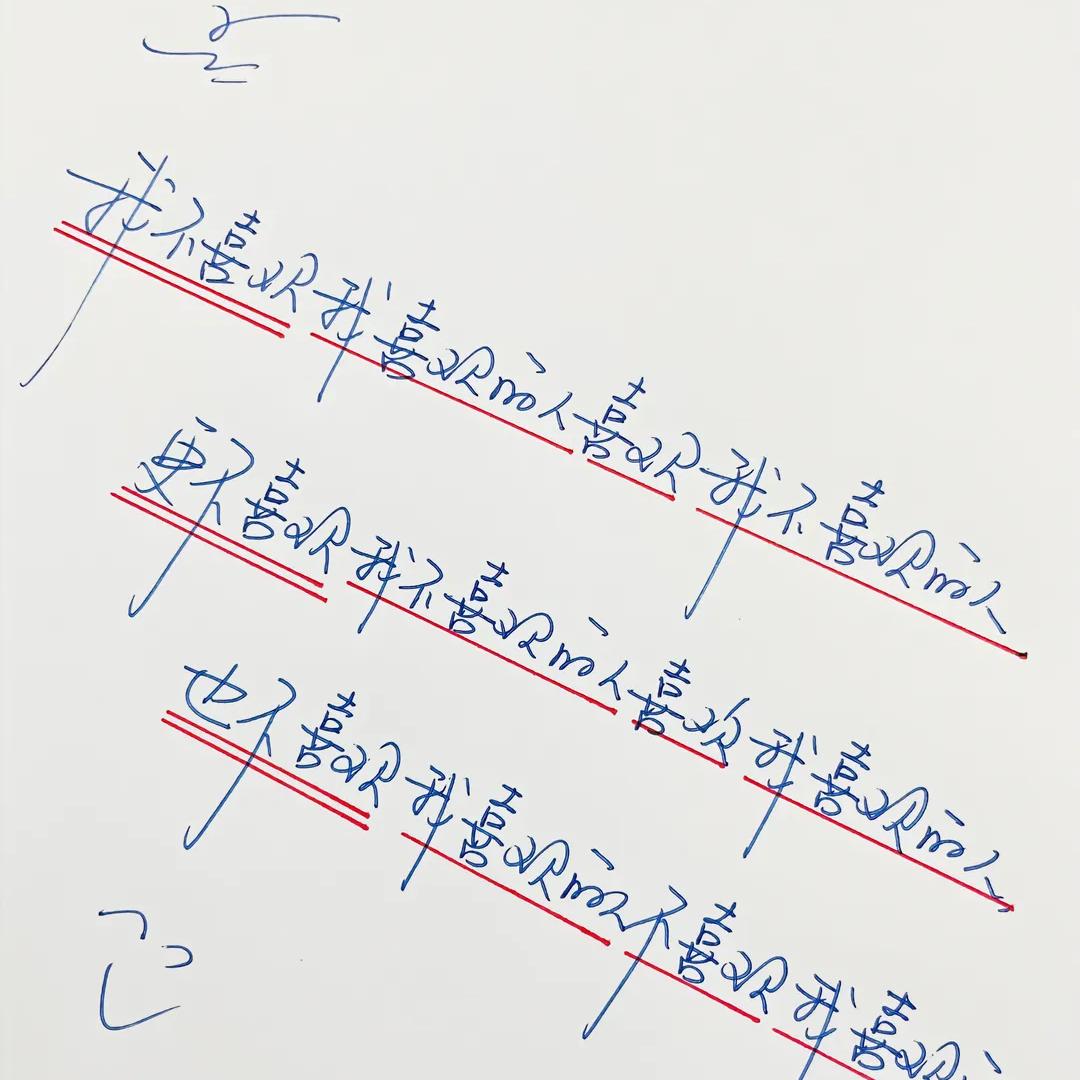 我不喜欢我喜欢的人喜欢我不喜欢的人
更不喜欢我不喜欢的人喜欢我喜欢的人
也不喜欢我喜欢的人不喜欢我喜欢